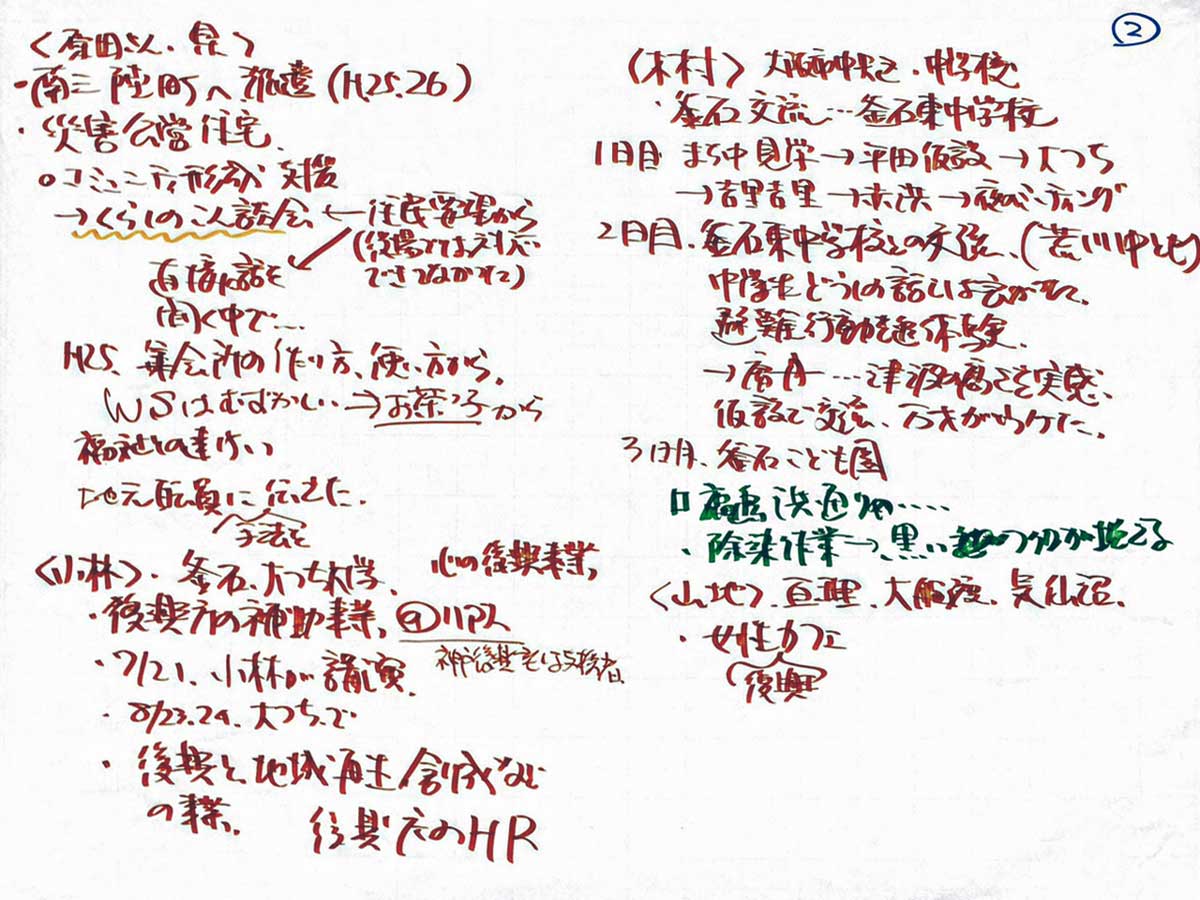 ②
〈原田さん、県〉
・南三陸町へ派遣(H.25.26)
・災害公営住宅
○コミュニティ形成支援
→くらしのこん談会 ← 住民管理から
(役場では対応
できてなかった)
直接話を
聞く中で…
H25、集会所の作り方、使い方から
WSはむずかしい→お茶っ子から
福祉との連けい
地元職員に伝えた。
手法を
〈小林〉・釜石、大つち大学、
心の復興事業、
・復興庁の補助事業、
神戸復興
・7/21、小林が講演
・8/23.24、大つちで
・復興と地域再生創成など
の事業、
復興庁のHR
〈木村〉大阪市中央区、中学校
・釜石交流…釜石東中学校
1日目 まち中見学→平田仮設→大つち
→吉里吉里→→夜ミーティング
2日目、釜石東中学校との交流、(荒川中とも)
中学生どうしの話しは会がもて、
避難行動を追体験
→席月…津波の高さを実感、
仮設で交流、万才がウケた。
3日目、釜石こども園
□福島浜通りや……
・除染作業→黒いがえる
〈山地〉、亘理、大船渡、気仙沼、
・女性カフェ
(復興)